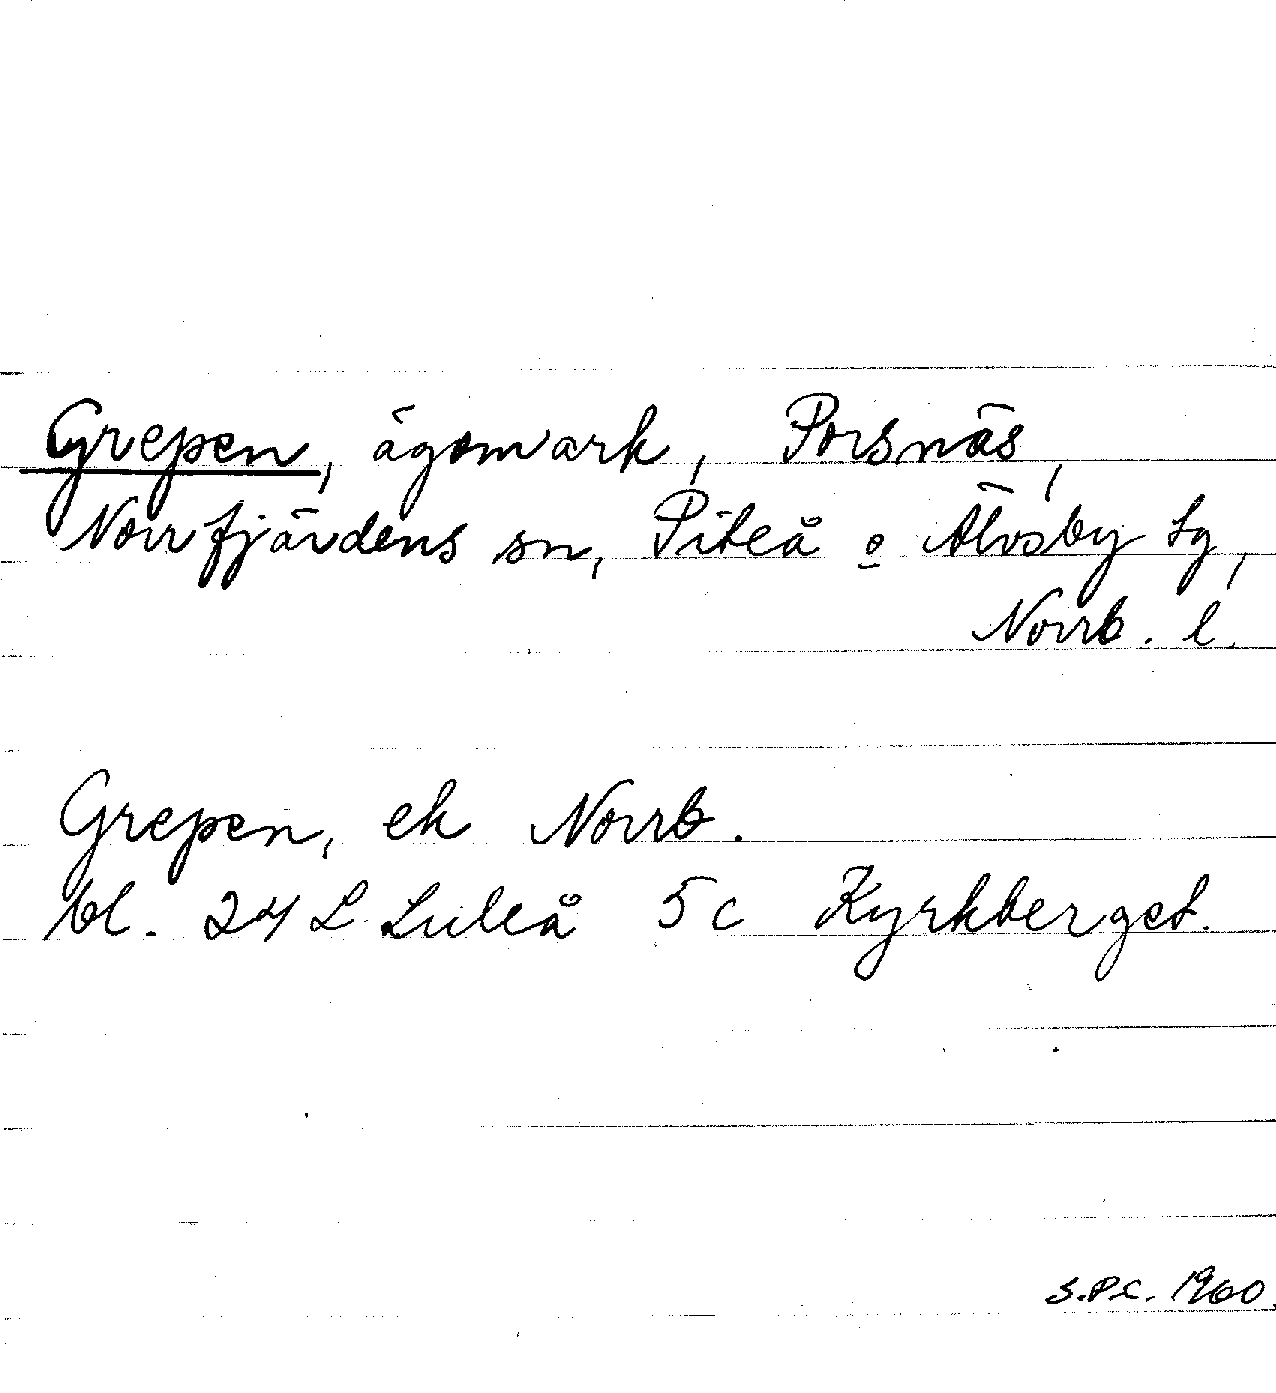 Grepen, ägomark, Porsnäs,
Norrfjärdens sn, Piteå o Älvsby tg,
Norrb. l.
Grepen, ek Norrb.
bl. 24 L Luleå 5 c Kyrkberget.
S.P.C. 1960.